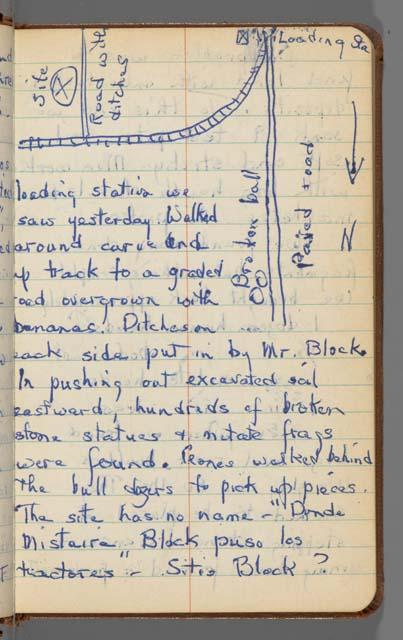 Loading Sta
Site
Road with
ditches
Broken ball
Paved road
N
loading station we
saw yesterday Walked
around curve and
up track to a graded
road overgrown with
bananas. Ditches on
each side put in by Mr. Block.
In pushing out excavated soil
eastward hundreds of broken
stone statues & metate frags
were found. Peones walked behind
the bull dozers to pick up pieces.
The site has no name - "Donde
Mistaire Block puso los
tractores" - Sitio Block?